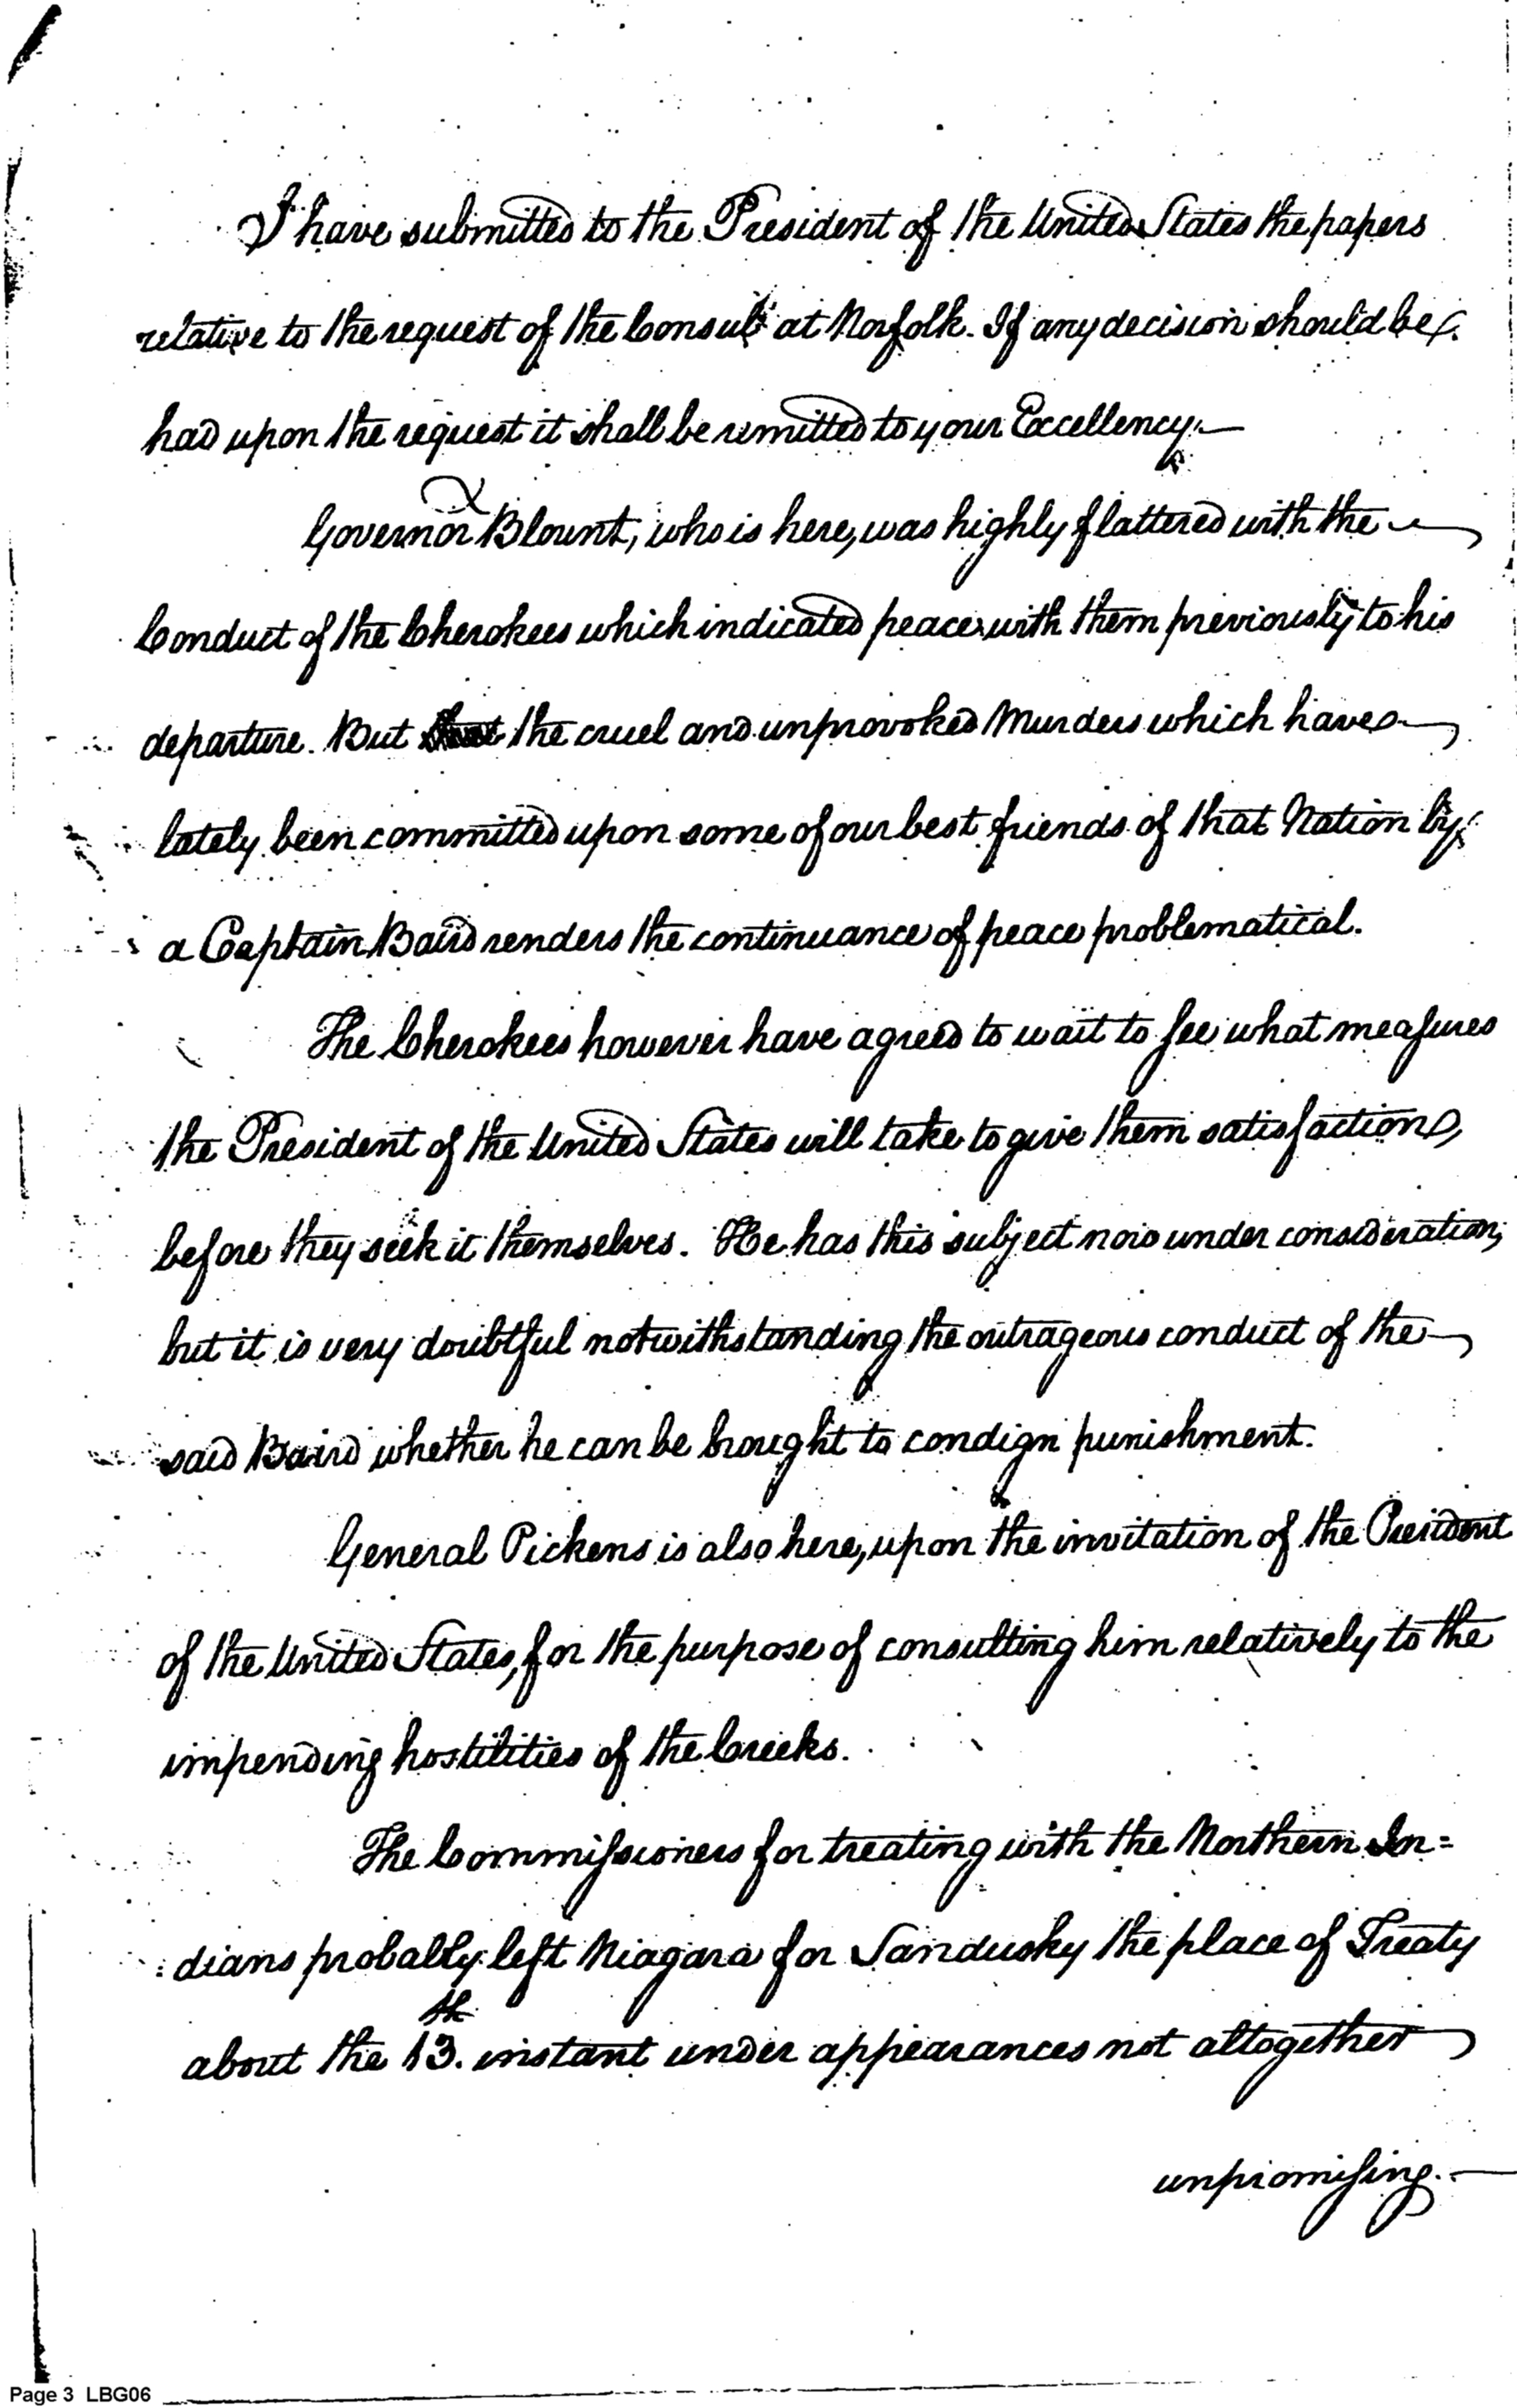 I have submitted to the President of the United States the papers
relative to the request of the Consul at Norfolk. If any decision should be
had upon the request it shall be remitted to your Excellency.—
Governor Blount, who is here, was highly flattered with the
Conduct of the Cherokees which indicated peace with them previously to his
departure. But the cruel and unprovoked Murders which have
lately been committed upon some of our best friends of that Nation by
a Captain Baird renders the continuance of peace problematical.
The Cherokees however have agreed to wait to see what measures
the President of the United States will take to give them satisfaction,
before they seek it themselves. He has this subject now under consideration,
but it is very doubtful notwithstanding the outrageous conduct of the
said Baird whether he can be brought to condign punishment.
General Pickens is also here, upon the invitation of the President
of the United States, for the purpose of consulting him relatively to the
impending hostilities of the Creeks.
The Commissioners for treating with the Northern In=
dians probably left Niagara for Sandusky the place of Treaty
about the 13.th instant under appearances not altogether
unpromising.—
Page 3 LBG06